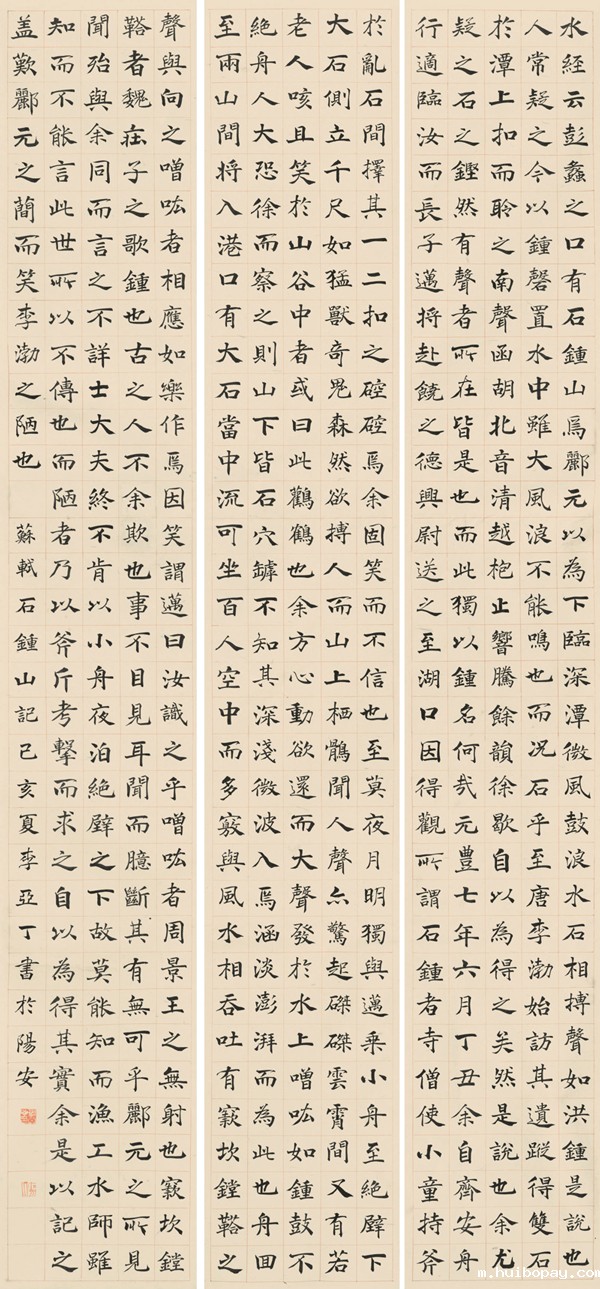 水經云彭蠡之口有石鍾山焉酈元以為下臨深潭微風鼓浪水石相搏聲如洪鍾是說也
人常疑之今以鍾磬置水中雖大風浪不能鳴也而況石乎至唐李渤始訪其遺蹤得雙石
於潭上扣而聆之南聲函胡北音清越枹止響騰餘韻徐歇自以為得之矣然是說也余尤
疑之石之鏗然有聲者所在皆是也而此獨以鍾名何哉元豐七年六月丁丑余自齊安舟
行適臨汝而長子邁將赴饒之德興尉送之至湖口因得觀所謂石鍾者寺僧使小童持斧
於亂石間擇其一二扣之硿硿焉余固笑而不信也至莫夜月明獨與邁乘小舟至絕壁下
大石側立千尺如猛獸奇鬼森然欲搏人而山上栖鶻聞人聲亦驚起磔磔雲霄間又有若
老人咳且笑於山谷中者或曰此鸛鶴也余方心動欲還而大聲發於水上噌吰如鍾鼓不
絕舟人大恐徐而察之則山下皆石穴罅不知其深淺微波入焉涵淡澎湃而為此也舟回
至兩山間將入港口有大石當中流可坐百人空中而多竅與風水相吞吐有窾坎鏜鞳之
聲與向之噌吰者相應如樂作焉因笑謂邁曰汝識之乎噌吰者周景王之無射也窾坎鏜
鞳者魏莊子之歌鍾也古之人不余欺也事不目見耳聞而臆斷其有無可乎酈元之所見
聞殆與余同而言之不詳士大夫終不肯以小舟夜泊絕壁之下故莫能知而漁工水師雖
知而不能言此世所以不傳也而陋者乃以斧斤考擊而求之自以為得其實余是以記之
盖歎酈元之蕳而笑李渤之陋也 蘇軾石鍾山記己亥夏李亞丁書於陽安
m.huibopay.com